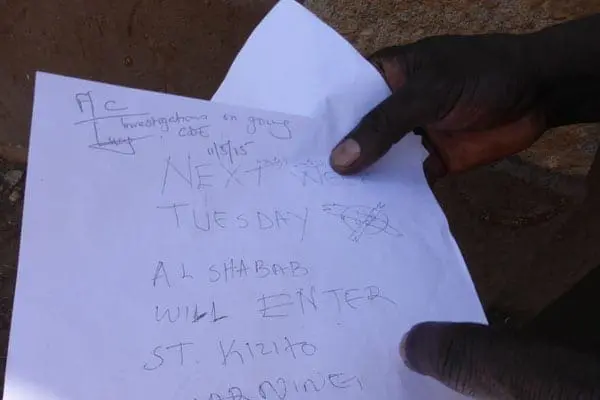 A/C
Investigations on going
CDE
11/5/15
NEXT
TUESDAY
AL SHABAB
WILL ENTER
ST. KIZITO